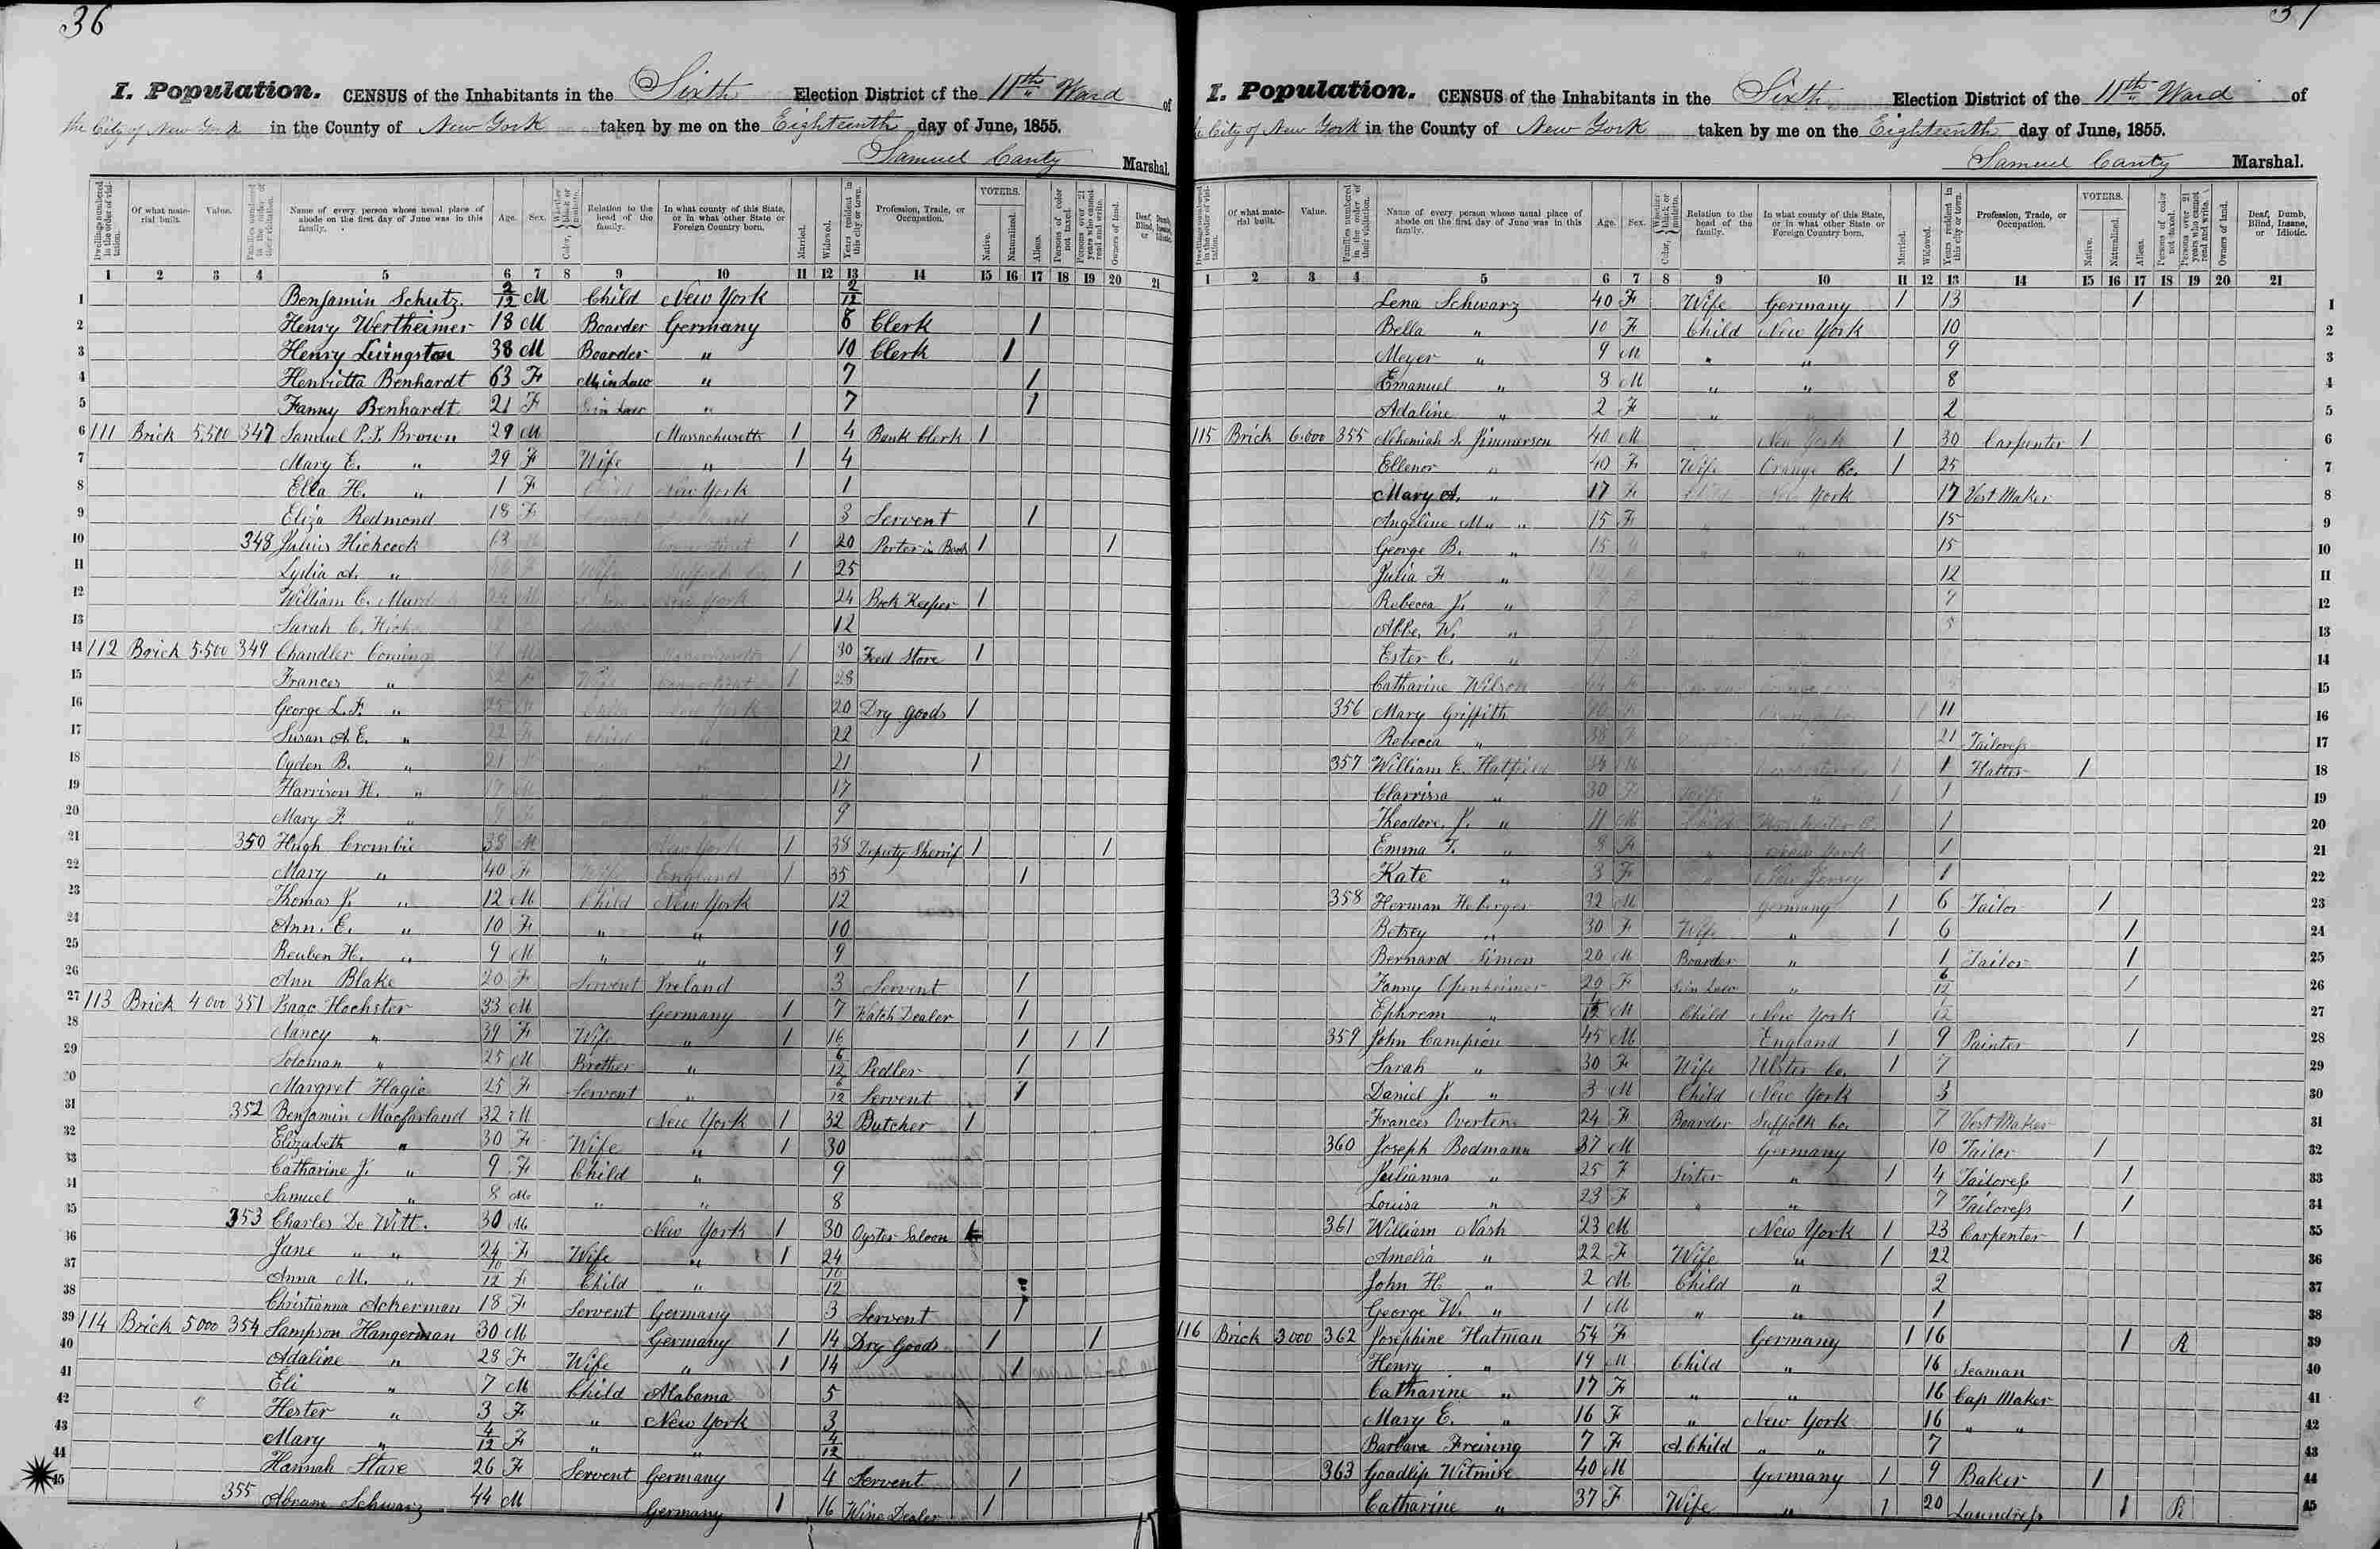 36
I. Population. CENSUS of the Inhabitants in the Sixth Election District of the 11th Ward of
the City of New York in the County of New York taken by me on the Eighteenth day of June, 1855.
Samuel Canty Marshal.
Of what material built. Value. Name of every person whose usual place of abode on the first day of June was in this family. Age. Sex. Relation to the head of the family. In what county of this State, or in what other State or Foreign Country born. Married. Widowed. Years resident in this city or town. Profession, Trade, or Occupation. VOTERS. Native. Naturalized. Aliens. Persons of color not taxed. Persons over 21 years who cannot read and write. Owners of land. Deaf, Dumb, Blind, Insane, or Idiotic.
1 2 3 4 5 6 7 8 9 10 11 12 13 14 15 16 17 18 19 20 21
1 Benjamin Schutz 2/12 M Child New York 2/12
2 Henry Wertheimer 18 M Boarder Germany 8 Clerk 1
3 Henry Livingston 38 M Boarder " 10 Clerk 1
4 Henrietta Benhardt 63 F M in Law " 7 1
5 Fanny Benhardt 21 F S in Law " 7 1
6 111 Brick 5.500 347 Samuel P. T. Brown 29 M Massachusetts 1 4 Bank Clerk 1
7 Mary E. " 29 F Wife " 1 4
8 Ella H. " 1 F Child New York 1
9 Eliza Redmond 18 F 3 Servent 1
10 348 Julius Hichcock 63 1 20 Porter in Bank 1 1
11 Lydia A. " Wife 1 25
12 William C. 24 M New York 24 Book Keeper 1
13 Sarah C. 12
14 112 Brick 5.500 349 Chandler Coming Massachusetts 1 30 Feed Store 1
15 Frances " Wife Connecticut 1 28
16 George L. F. " Child New York 20 Dry goods 1
17 Susan A. E. " 22 F Child " 22
18 Ogden B. " 21 21 1
19 Harrison H. " 17 M " 17
20 Mary F. " 9 F 9
21 350 Hugh Crombie 38 M New York 1 38 Deputy Sherrif 1 1
22 Mary " 40 F Wife England 1 35 1
23 Thomas J. " 12 M Child New York 12
24 Ann. E. " 10 F " " 10
25 Reuben H. " 9 M " " 9
26 Ann Blake 20 F Servent Ireland 3 Servent 1
27 113 Brick 4 000 351 Isaac Hochster 33 M Germany 1 7 Watch Dealer 1
28 Nancy " 39 F Wife " 1 16 1 1 1
29 Soloman " 25 M Brother " 6/12 Pedler 1
30 Margret Hagie 25 F Servent " 6/12 Servent 1
31 352 Benjamin Macfarland 32 M New York 1 32 Butcher 1
32 Elizabeth " 30 F Wife " 1 30
33 Catharine J. " 9 F Child " 9
34 Samuel " 8 M " " 8
35 353 Charles De Witt. 30 M New York 1 30 Oyster Saloon 1
36 Jane " " 24 F Wife " 1 24
37 Anna M. " 10/12 F Child " 10/12
38 Christianna Ackerman 18 F Servent Germany 3 Servent 1
39 114 Brick 5000 354 Sampson Hangerman 30 M Germany 1 14 Dry Goods 1 1
40 Adaline " 28 F Wife " 1 14 1
41 Eli " 7 M Child Alabama 5
42 Hester " 3 F " New York 3
43 Mary " 4/12 F " " 4/12
44 Hannah Stare 26 F Servent Germany 4 Servent 1
45 355 Abram Schwarz 44 M Germany 1 16 Wine Dealer 1
37
I. Population. CENSUS of the Inhabitants in the Sixth Election District of the 11th Ward of
the City of New York in the County of New York taken by me on the Eighteenth day of June, 1855.
Samuel Canty Marshal.
Dwellings numbered in the order of visitation. Of what material built. Value. Families numbered in the order of their visitation. Name of every person whose usual place of abode on the first day of June was in this family. Age. Sex. Color, Whether black or mulatto. Relation to the head of the family. In what county of this State, or in what other State or Foreign Country born. Married. Widowed. Years resident in this city or town. Profession, Trade, or Occupation. VOTERS. Native. Naturalized. Aliens. Persons of color not taxed. Persons over 21 years who cannot read and write. Owners of land. Deaf, Dumb, Blind, Insane, or Idiotic.
1 2 3 4 5 6 7 8 9 10 11 12 13 14 15 16 17 18 19 20 21
Lena Schwarz 40 F Wife Germany 1 13 1 1
Bella " 10 F Child New York 10 2
Meyer " 9 M " " 9 3
Emanuel " 8 M " " 8 4
Adaline " 2 F " " 2 5
115 Brick 6.000 355 Nehemiah S. Jimmerson 40 M New York 1 30 Carpenter 1 6
Ellenor " 40 F Wife Orange Co. 1 25 7
Mary A. " 17 F Child New York 17 Vest Maker 8
Angeline M. " 15 F " 15 9
George B. " 15 " " 15 10
Julia F " 12 12 11
Rebecca J. " 7 12
Abbe. W. " 5 13
Ester C. " 14
Catharine Wilson 15
356 Mary Griffith 11 16
Rebecca " 21 Tailoress 17
357 William E. Hatfield 1 1 Hatter 1 18
Clarrissa " 30 F Wife " 1 1 19
Theodore. J. " 11 M Child 1 20
Emma F. " 8 F " New York 1 21
Kate " 3 F " New Jersey 1 22
358 Herman Heberger 32 M Germany 1 6 Tailor 1 23
Betsey " 30 F Wife " 1 6 1 24
Bernard Simon 20 M Boarder " 1 Tailor 1 25
Fanny Openheimer 29 F S in Law " 6/12 1 26
Ephrem " M Child New York 27
359 John Campion 45 M England 1 9 Painter 1 28
Sarah " 30 F Wife Ulster Co. 1 7 29
Daniel J. " 3 M Child New York 3 30
Frances Overten 24 F Boarder Suffolk Co. 7 Vest Maker 31
360 Joseph Bodmann 37 M Germany 10 Tailor 1 32
Julianna " 25 F Sister " 1 4 Tailoress 1 33
Louisa " 23 F " " 7 Tailoress 1 34
361 William Nash 23 M New York 1 23 Carpenter 1 35
Amelia " 22 F Wife " 1 22 36
John H. " 2 M Child " 2 37
George W. " 1 M " " 1 38
116 Brick 3000 362 Josephine Hatman 54 F Germany 1 16 1 R 39
Henry " 19 M Child " 16 Seaman 40
Catharine " 17 F " " 16 Cap Maker 41
Mary E. " 16 F " New York 16 " " 42
Barbara Freising 7 F A. Child " " 7 43
363 Goadlip Witmire 40 M Germany 1 9 Baker 1 44
Catharine " 37 F Wife " 1 20 Laundress 1 R 45